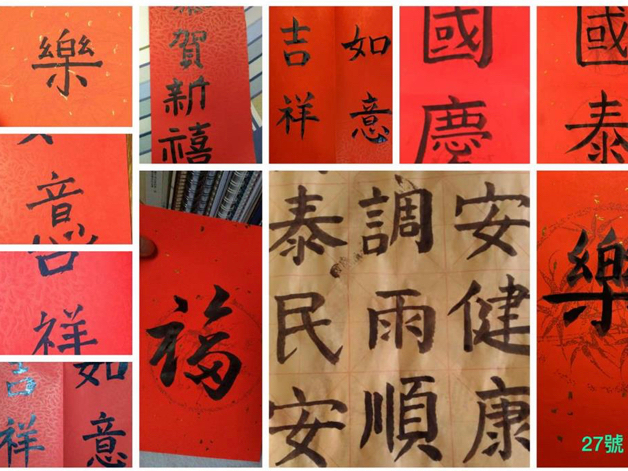 樂
恭賀新禧
如意
吉祥
國慶
國泰
意
吉祥
如意
吉祥
福
安健康
調雨順
泰民安
樂
27號